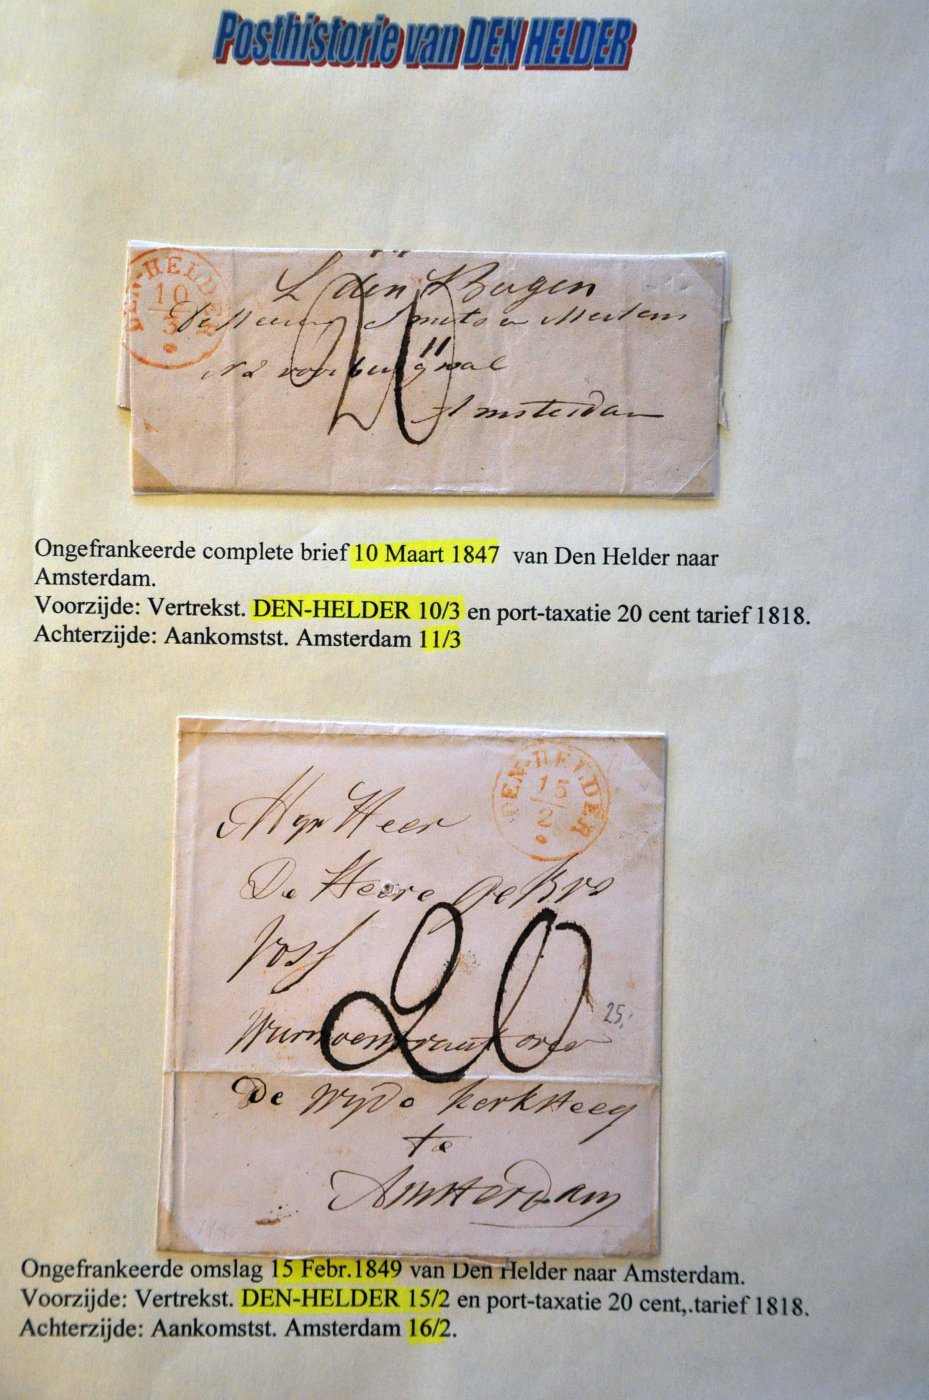 Posthistorie van DEN HELDER
DEN-HELDER
10
3
L den Bogen
De Heeren Smets en Mertens
11
Amsterdam
20
Ongefrankeerde complete brief 10 Maart 1847 van Den Helder naar
Amsterdam.
Voorzijde: Vertrekst. DEN-HELDER 10/3 en port-taxatie 20 cent tarief 1818.
Achterzijde: Aankomstst. Amsterdam 11/3
DEN-HELDER
15
2
Myn Heer
De Heere geBrs
Vos
20
25.
De Wyde kerksteeg
te
Amsterdam
Ongefrankeerde omslag 15 Febr.1849 van Den Helder naar Amsterdam.
Voorzijde: Vertrekst. DEN-HELDER 15/2 en port-taxatie 20 cent,.tarief 1818.
Achterzijde: Aankomstst. Amsterdam 16/2.